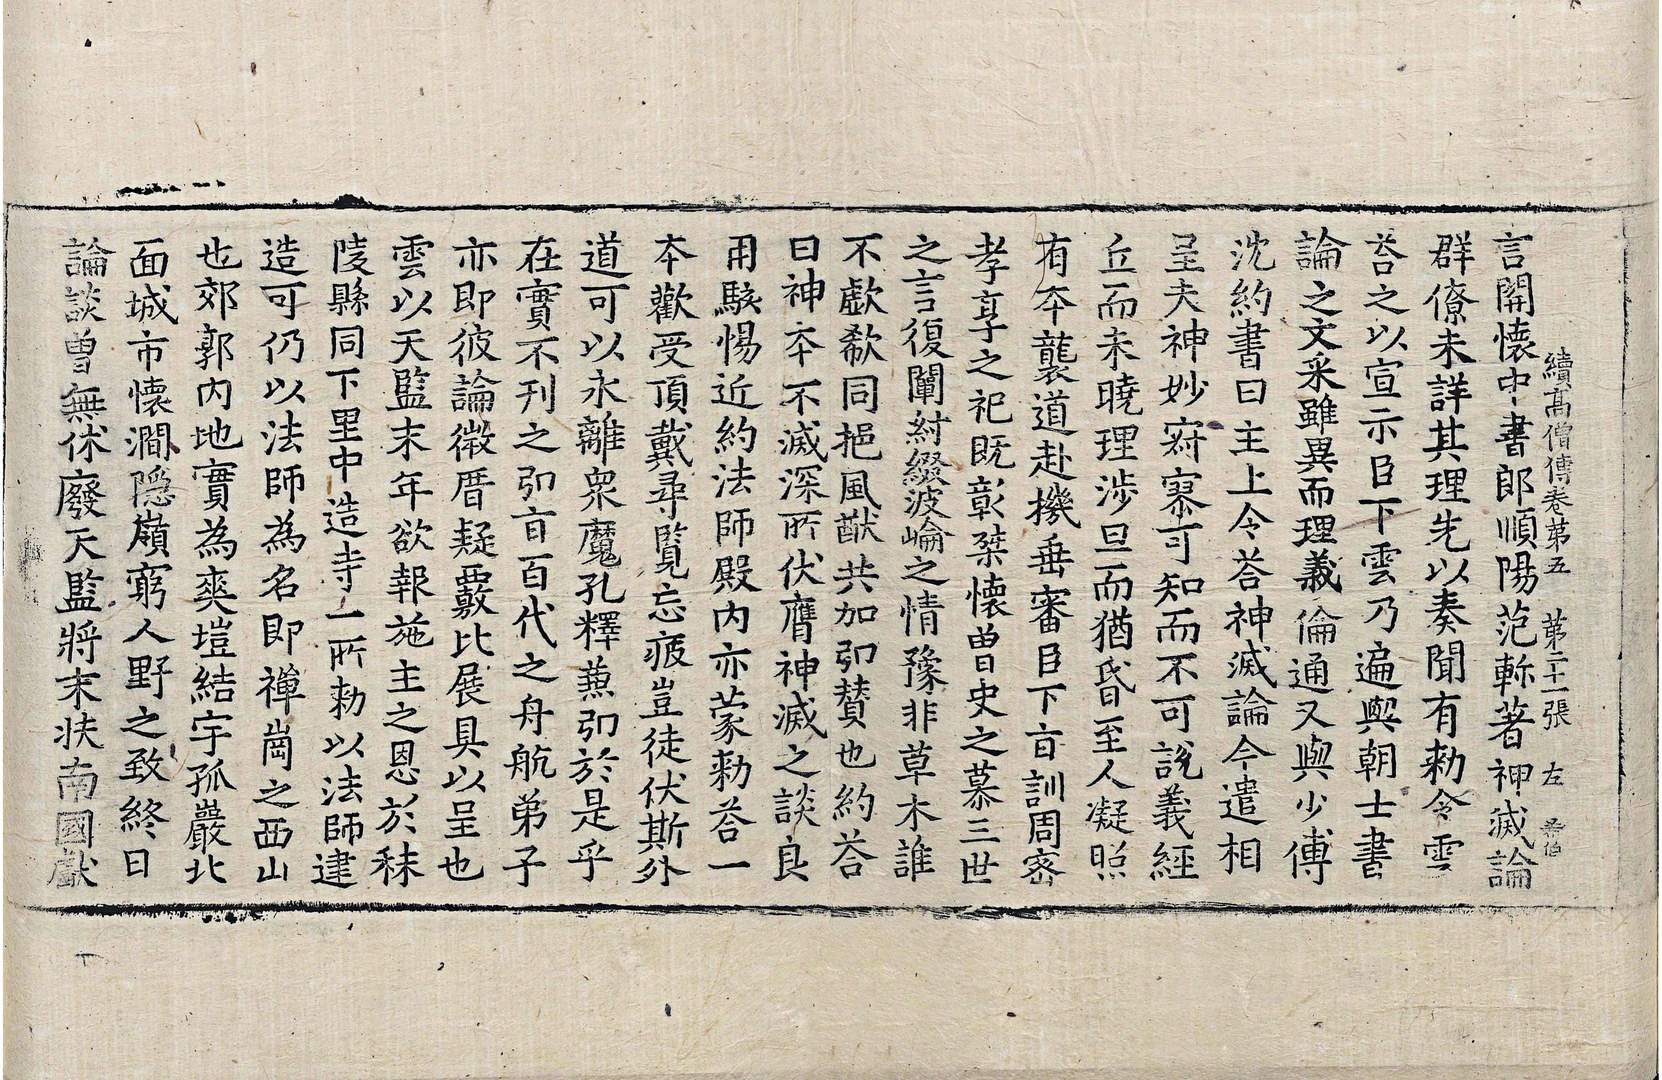 續高僧傳卷第五　第二十一張　左
言開懷中書郎順陽范軫著神滅論
群僚未詳其理先以奏聞有勑令雲
荅之以宣示臣下雲乃遍與朝士書
論之文采雖異而理義倫通又與少傅
沈約書曰主上令荅神滅論今遣相
呈夫神妙寂寥可知而不可說義經
丘而未曉理涉旦而猶昏至人凝照
有本襲道赴機垂審臣下旨訓周密
孝享之祀既彰桀懷曾史之慕三世
之言復闡紂綴波崘之情豫非草木誰
不歔欷同挹風猷共加弘贊也約荅
曰神本不滅深所伏膺神滅之談良
用駭惕近約法師殿內亦蒙勑荅一
本歡受頂戴尋覽忘疲豈徒伏斯外
道可以永離衆魔孔釋兼弘於是乎
在實不刊之弘旨百代之舟航弟子
亦即彼論微厝疑覈比展具以呈也
雲以天監末年欲報施主之恩於秣
陵縣同下里中造寺一所勑以法師建
造可仍以法師為名即禪崗之西山
也郊郭內地實為爽塏結宇孤巖北
面城市懷澗隱嶺窮人野之致終日
論談曾無休廢天監將末扶南國獻